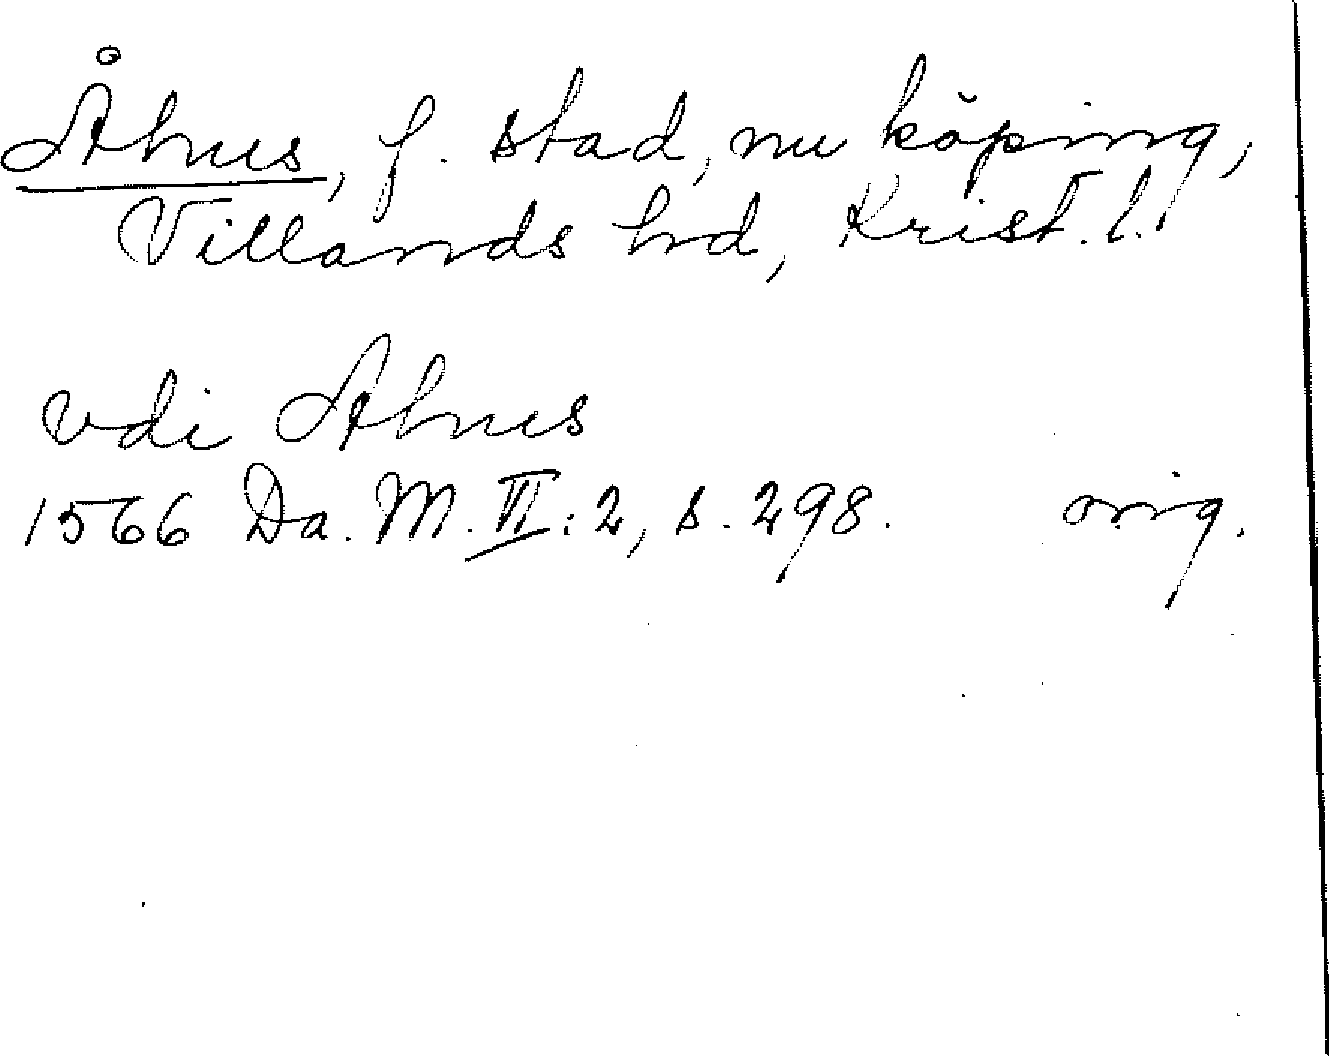 Åhus, f. stad, nu köping,
Villands hd, Krist. l.
vdi Ahus
1566 Da. M. VI: 2, s. 298. orig.